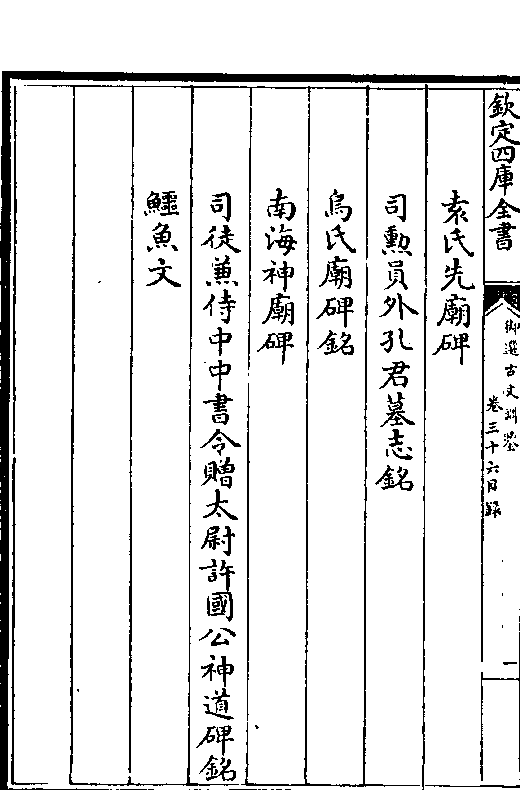 欽定四庫全書
御選古文淵鑒
卷三十六目錄
一
袁氏先廟碑
司勲員外孔君墓志銘
烏氏廟碑銘
南海神廟碑
司徒兼侍中中書令贈太尉許國公神道碑銘
鱷魚文